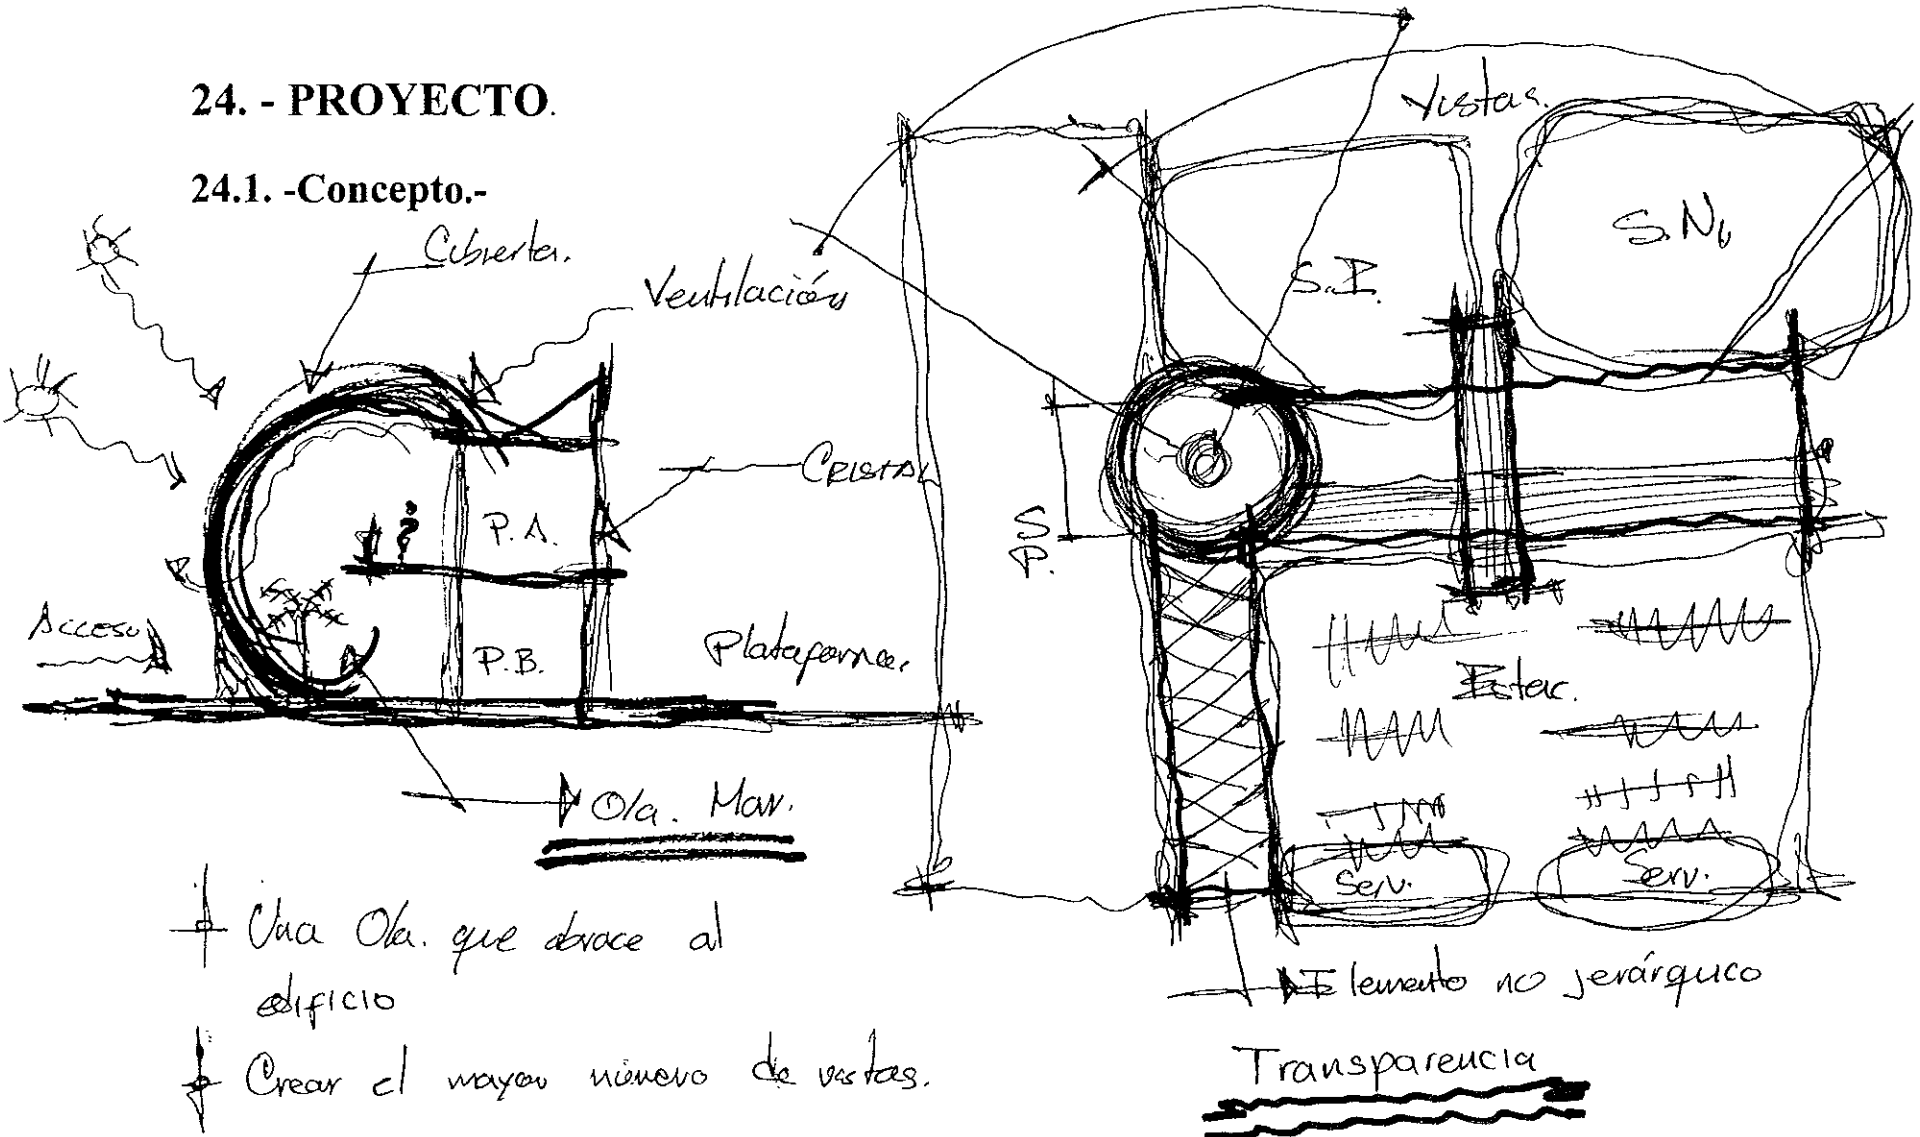 24. - PROYECTO.
24.1. -Concepto.-
Cubierta.
Ventilación
CRISTAL
P.A.
P.B.
Acceso
Plataforma.
Ola. Mar.
Una Ola. que abrace al
edificio
Crear el mayor número de vistas.
Vistas.
S.I.
S.N.
S.
P.
Estac.
Serv.
Serv.
Elemento no jerárquico
Transparencia